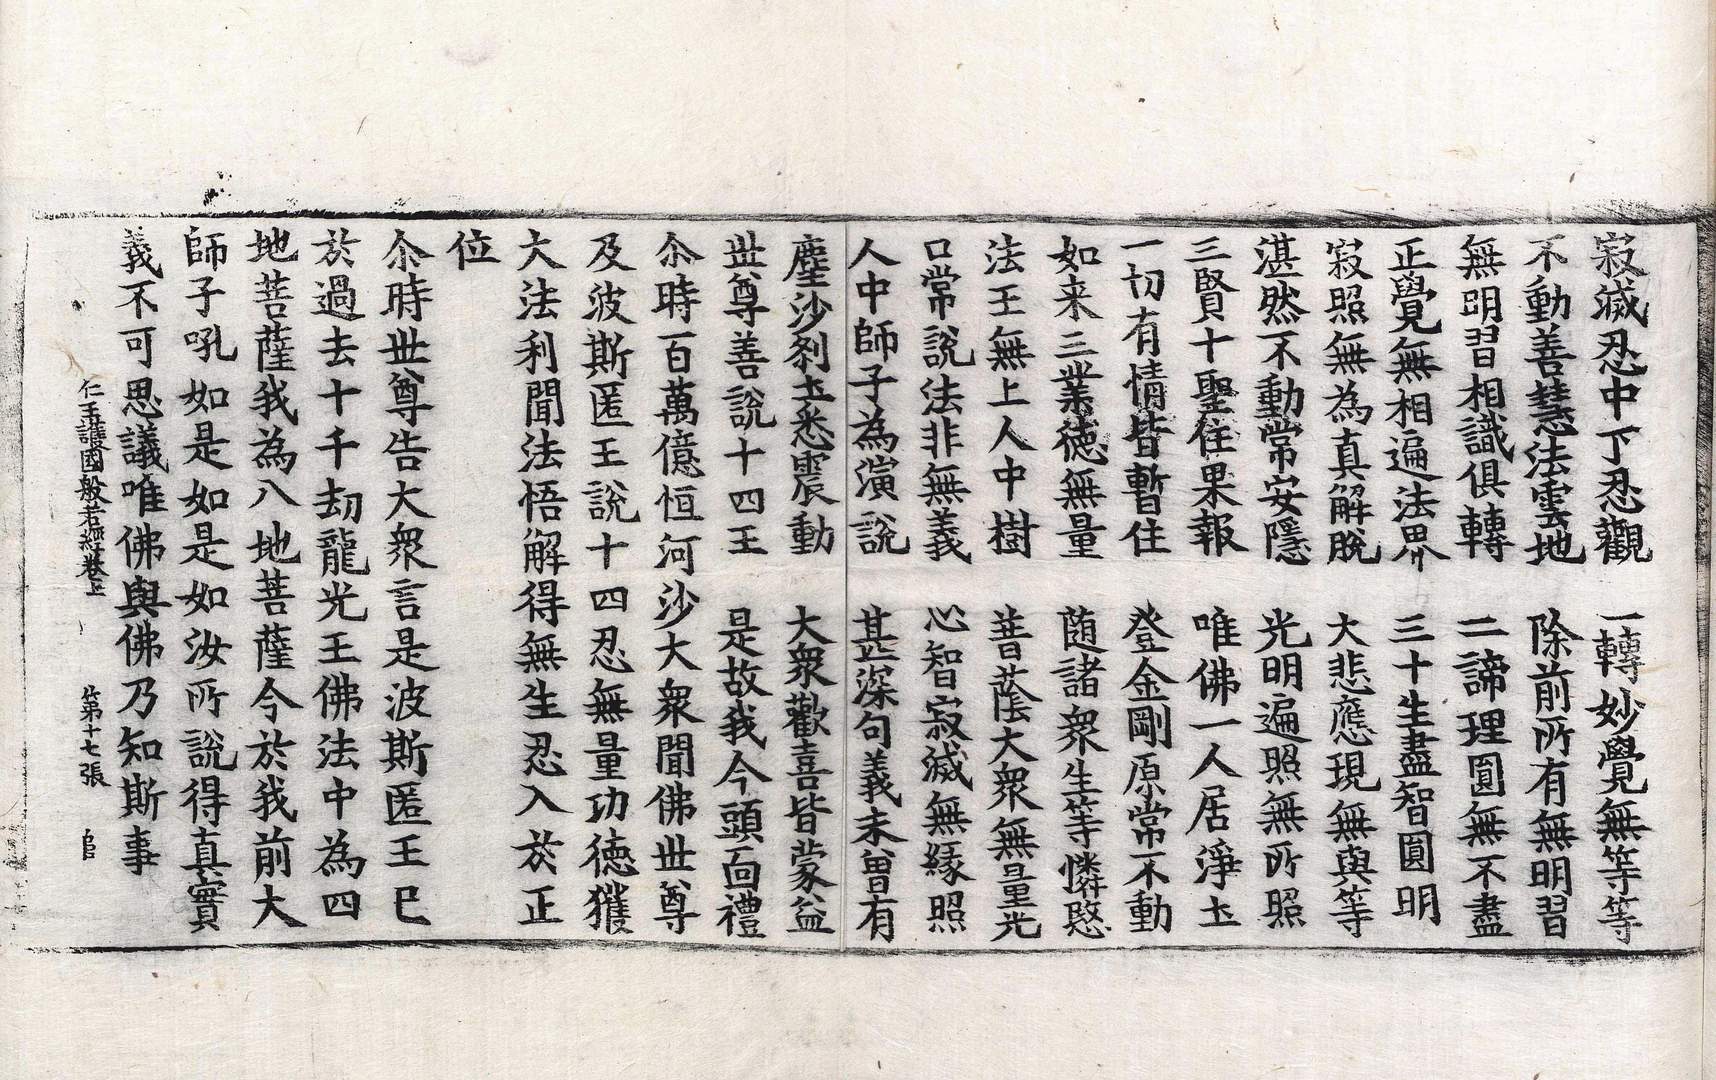 寂滅忍中下忍觀　一轉妙覺無等等
不動善慧法雲地　除前所有無明習
無明習相識俱轉　二諦理圓無不盡
正覺無相遍法界　三十生盡智圓明
寂照無為真解脫　大悲應現無與等
湛然不動常安隱　光明遍照無所照
三賢十聖住果報　唯佛一人居淨土
一切有情皆暫住　登金剛原常不動
如来三業德無量　隨諸衆生等憐愍
法王無上人中樹　普蔭大衆無量光
口常說法非無義　心智寂滅無緣照
人中師子為演說　甚深句義未曾有
塵沙刹土悉震動　大衆歡喜皆蒙益
世尊善說十四王　是故我今頭面禮
尒時百萬億恒河沙大衆聞佛世尊
及波斯匿王說十四忍無量功德獲
大法利聞法悟解得無生忍入於正
位
尒時世尊告大衆言是波斯匿王已
於過去十千劫龍光王佛法中為四
地菩薩我為八地菩薩今於我前大
師子吼如是如是如汝所說得真實
義不可思議唯佛與佛乃知斯事
仁王護國般若經卷上　第十七張